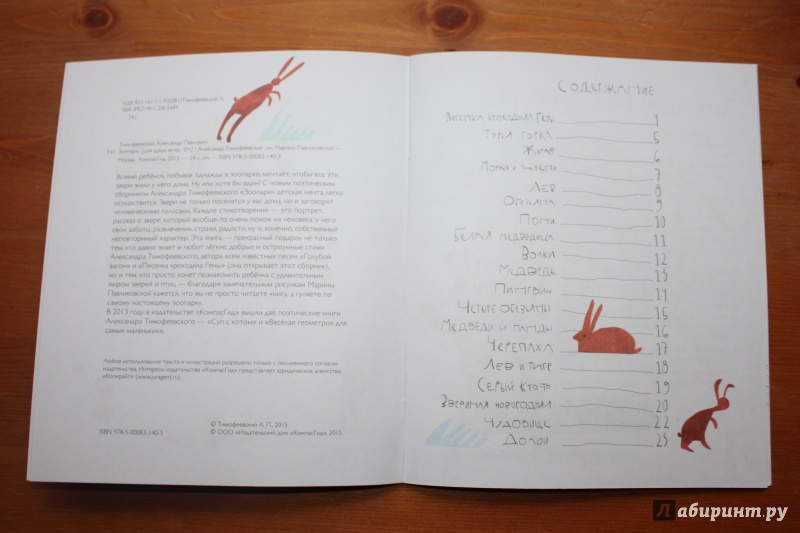 УДК 821.161.1-1-93.08Тимофеевский А.
Тимофеевский, Александр Павлович
Зоопарк : [для дошк. возр. : 0+] / Александр Тимофеевский ; ил. Марины Павликовской. —
Москва : КомпасГид, 2015. — 24 с., ил. — ISBN 978-5-00083-140-3.
Всякий ребёнок, побывав однажды в зоопарке, мечтает, чтобы все эти
звери жили у него дома. Ну или хотя бы один! С новым поэтическим
сборником Александра Тимофеевского «Зоопарк» детская мечта легко
осуществится. Звери не только поселятся у вас дома, но и заговорят
человеческими голосами. Каждое стихотворение — это портрет,
рассказ о звере, который вообще-то очень похож на человека: у него
свои заботы, развлечения, страхи, радости, ну и, конечно, собственный
неповторимый характер. Эта книга — прекрасный подарок не только
тем, кто давно знает и любит лёгкие, добрые и остроумные стихи
Александра Тимофеевского, автора всем известных песен «Голубой
вагон» и «Песенка крокодила Гены» (она открывает этот сборник),
но и тем, кто просто хочет познакомить ребёнка с удивительным
миром зверей и птиц, — благодаря замечательным рисункам Марины
Павликовской кажется, что вы не просто читаете книгу, а гуляете по
самому настоящему зоопарку.
В 2013 году в издательстве «КомпасГид» вышли две поэтические книги
Александра Тимофеевского — «Суп с котом» и «Весёлая геометрия для
самых маленьких».
Любое использование текста и иллюстраций разрешено только с письменного согласия
издательства. Интересы издательства «КомпасГид» представляет юридическое агентство
«Копирайт» (www.juragent.ru).
© Тимофеевский А. П., 2015
ISBN 978-5-00083-140-3 © ООО «Издательский дом «КомпасГид», 2015
СОДЕРЖАНИЕ
Песенка крокодила Гены 4
5
Жираф 6
7
Лев 8
Обезьяна 9
Пони 10
Белая медведица 11
Волки 12
Медведь 13
Пингвин 14
Четыре обезьяны 15
Медведи и панды 16
Черепаха 17
Лев и тигр 18
Серый кто-то 19
Звериная новогодняя 20
Чудовище 22
Домой 23
Лабиринт.ру